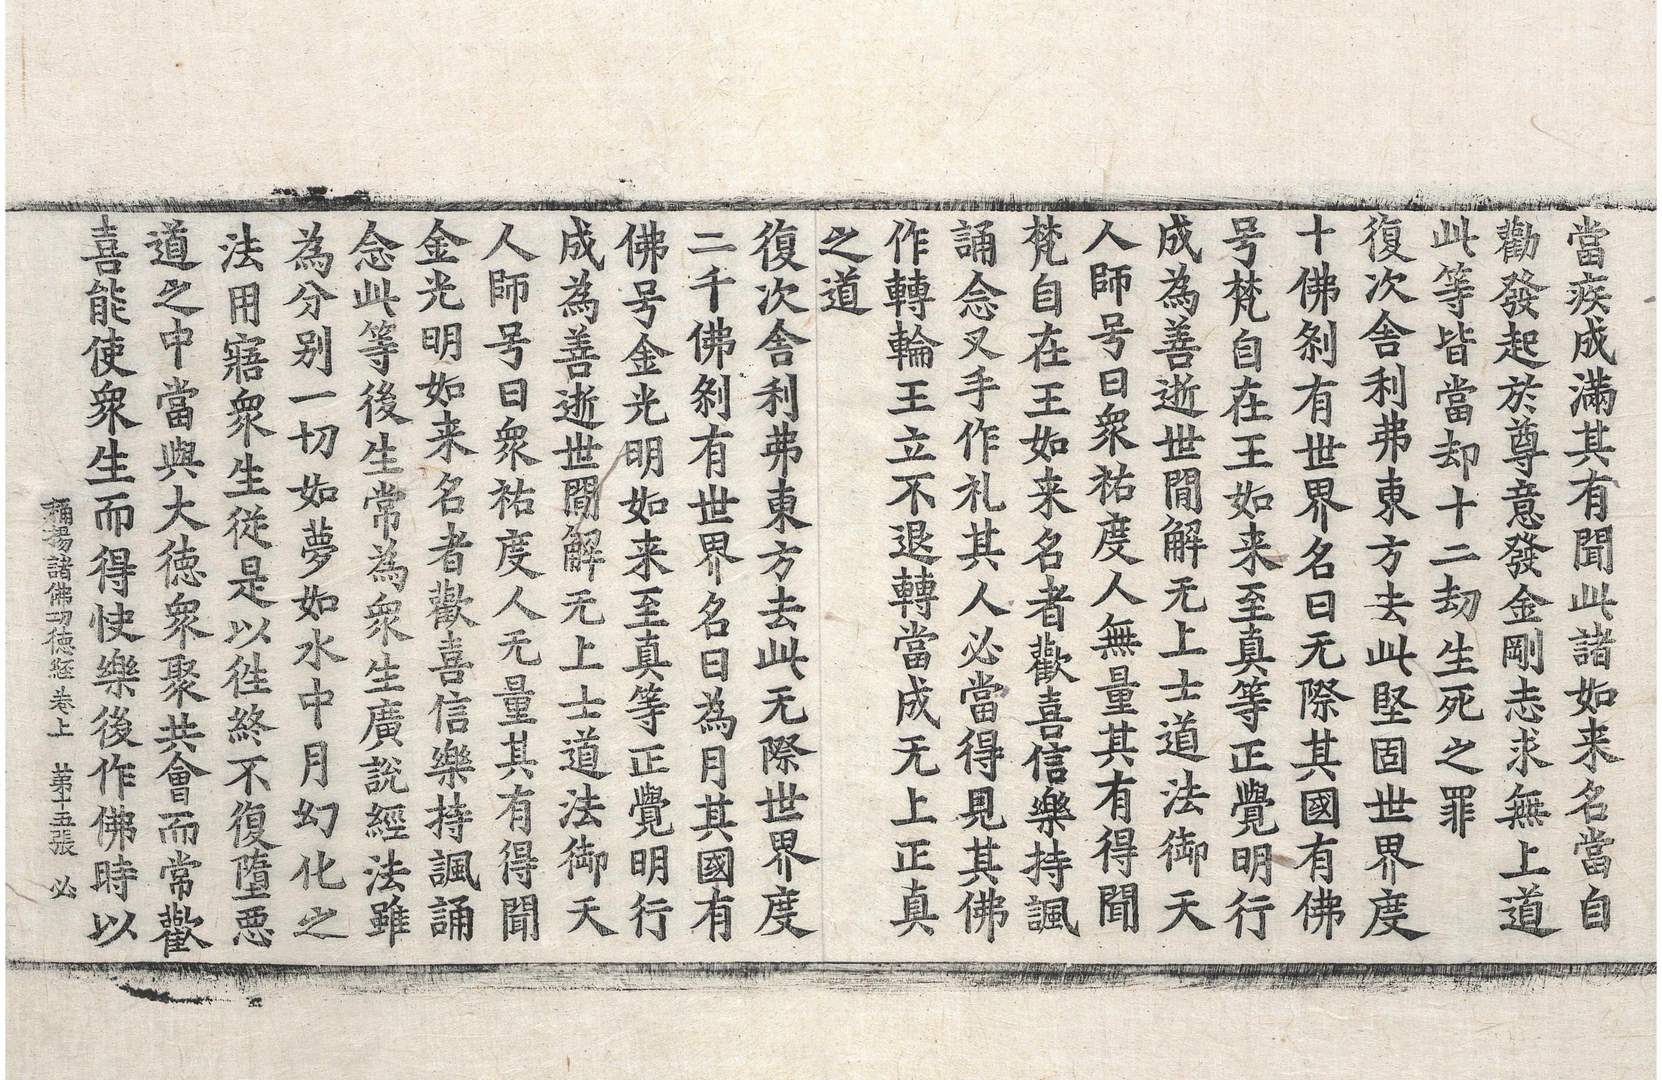 當疾成滿其有聞此諸如来名當自
勸發起於尊意發金剛志求無上道
此等皆當却十二劫生死之罪
復次舍利弗東方去此堅固世界度
十佛剎有世界名曰无際其國有佛
号梵自在王如来至真等正覺明行
成為善逝世間解无上士道法御天
人師号曰衆祐度人無量其有得聞
梵自在王如来名者歡喜信樂持諷
誦念叉手作礼其人必當得見其佛
作轉輪王立不退轉當成无上正真
之道
復次舍利弗東方去此无際世界度
二千佛剎有世界名曰為月其國有
佛号金光明如来至真等正覺明行
成為善逝世間解无上士道法御天
人師号曰衆祐度人无量其有得聞
金光明如来名者歡喜信樂持諷誦
念此等後生常為衆生廣說經法雖
為分别一切如夢如水中月幻化之
法用寤衆生從是以往終不復墮惡
道之中當與大德衆聚共會而常歡
喜能使衆生而得快樂後作佛時以
稱揚諸佛功德経卷上 第十五張 必